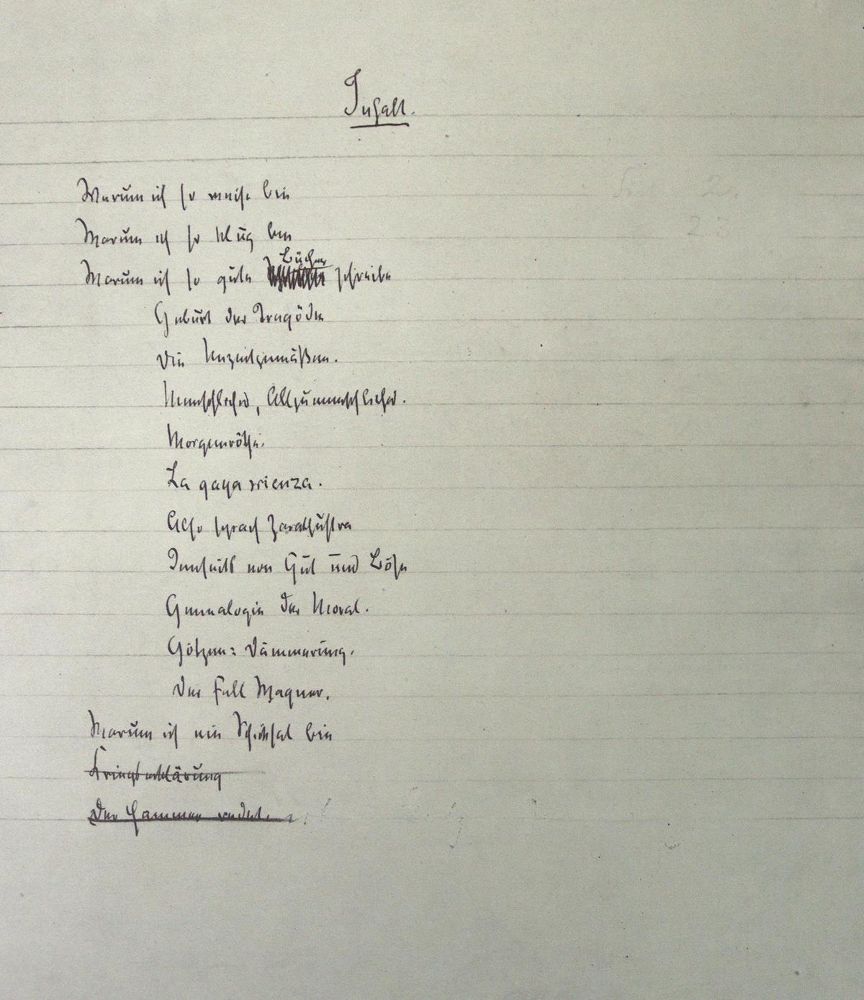 Inhalt.
Warum ich so weise bin
Warum ich so klug bin
Warum ich so gute Bücher schreibe
Geburt der Tragödie
Die Unzeitgemäßen.
Menschliches, Allzumenschliches.
Morgenröthe.
La gaya scienza.
Also sprach Zarathustra
Jenseits von Gut und Böse
Genealogie der Moral.
Götzen-Dämmerung.
Der Fall Wagner.
Warum ich ein Schicksal bin
Kriegserklärung
Der Hammer redet.